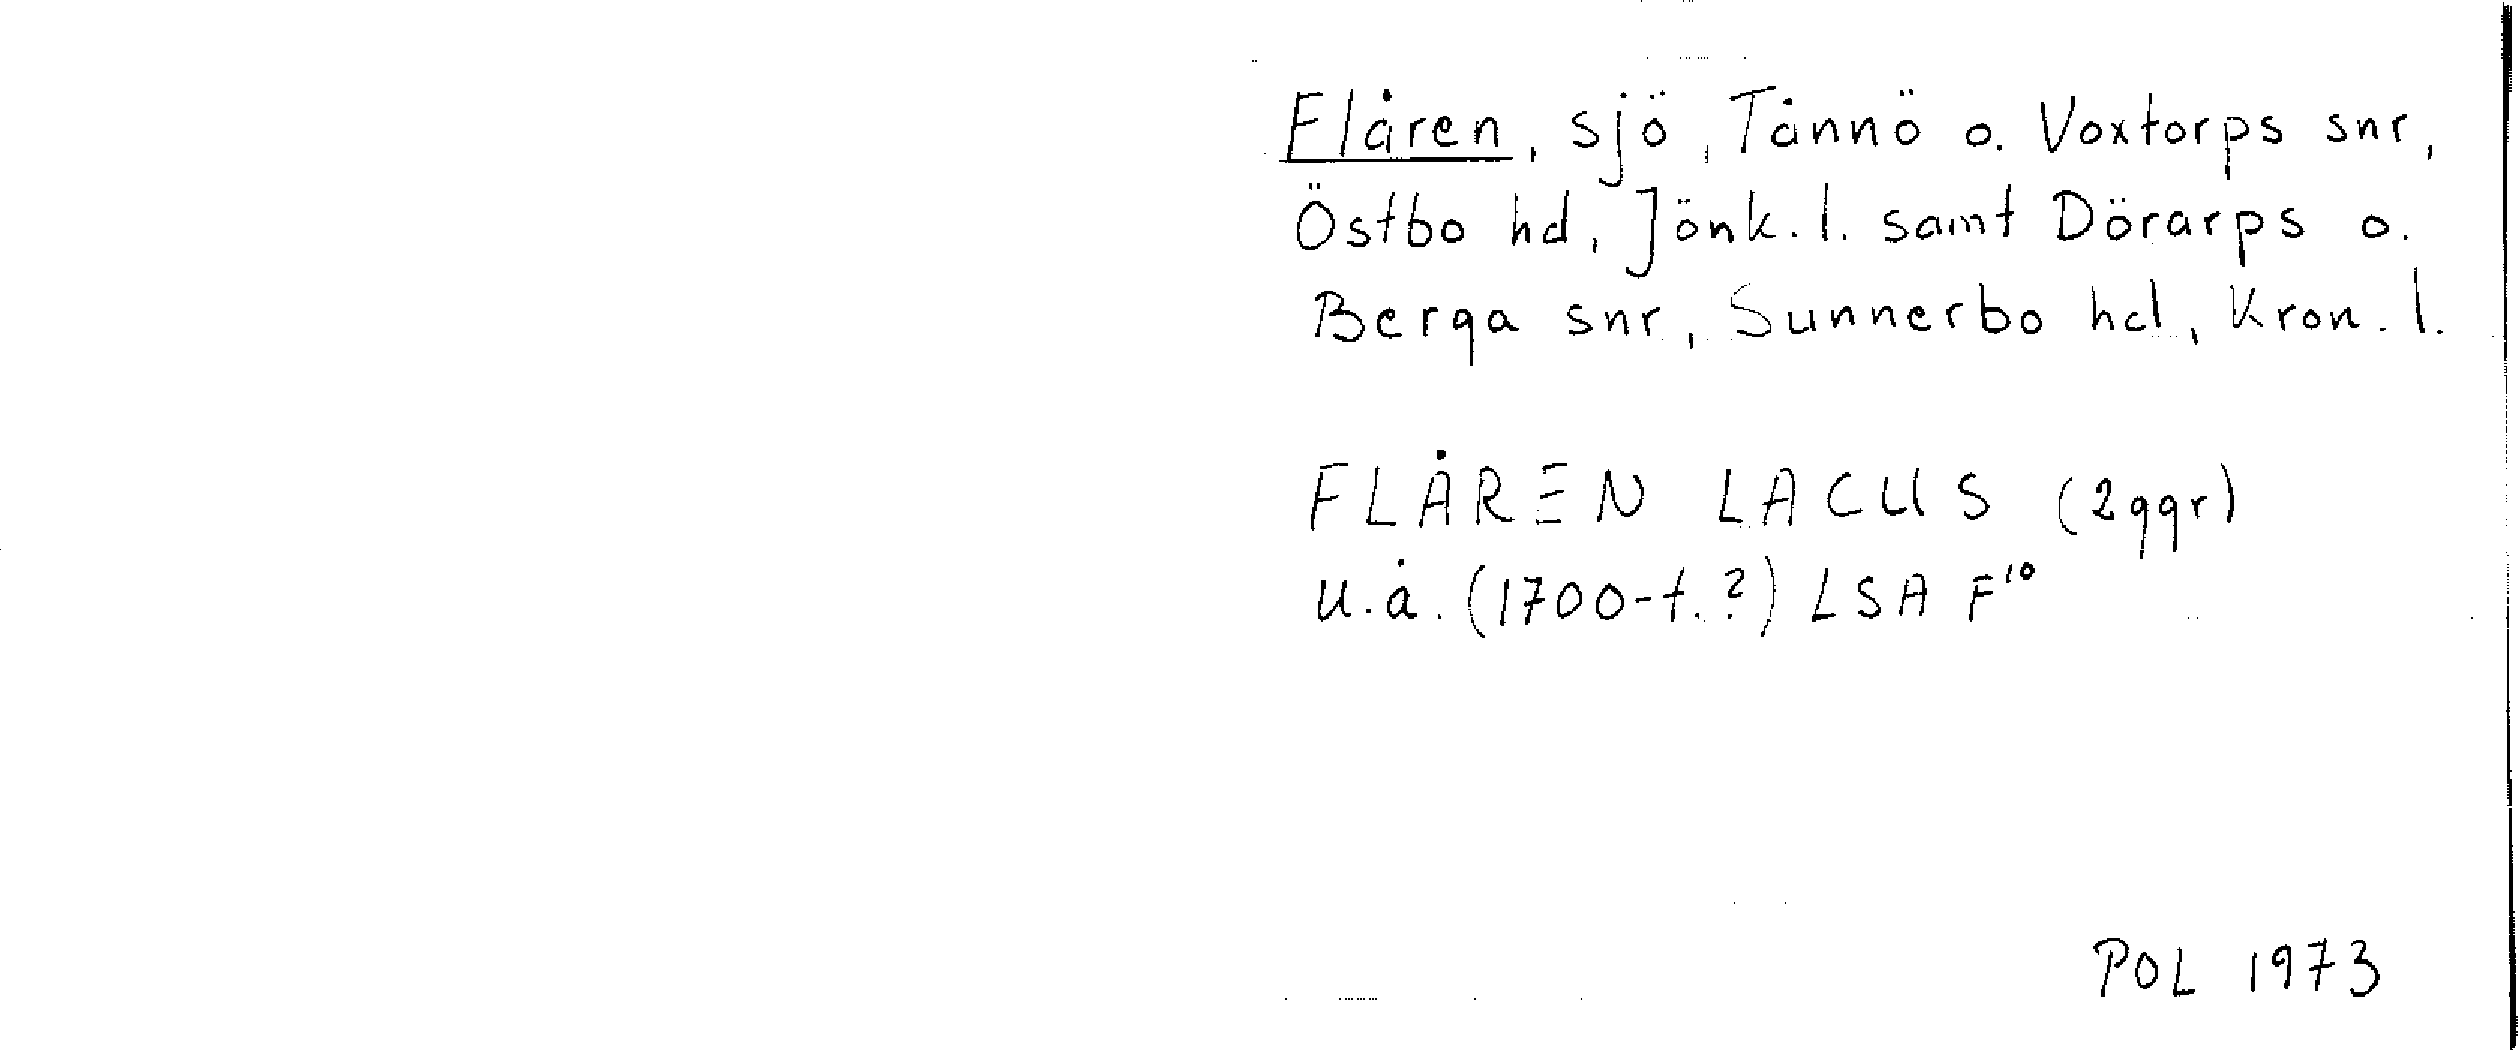 Flåren, sjö, Tånnö o. Voxtorps snr,
Östbo hd, Jönk. l. samt Dörarps o.
Berga snr, Sunnerbo hd, Kron. l.
FLÅREN LACUS (2ggr)
U.å. (1700-t.?) LSA F¹⁰
POL 1973